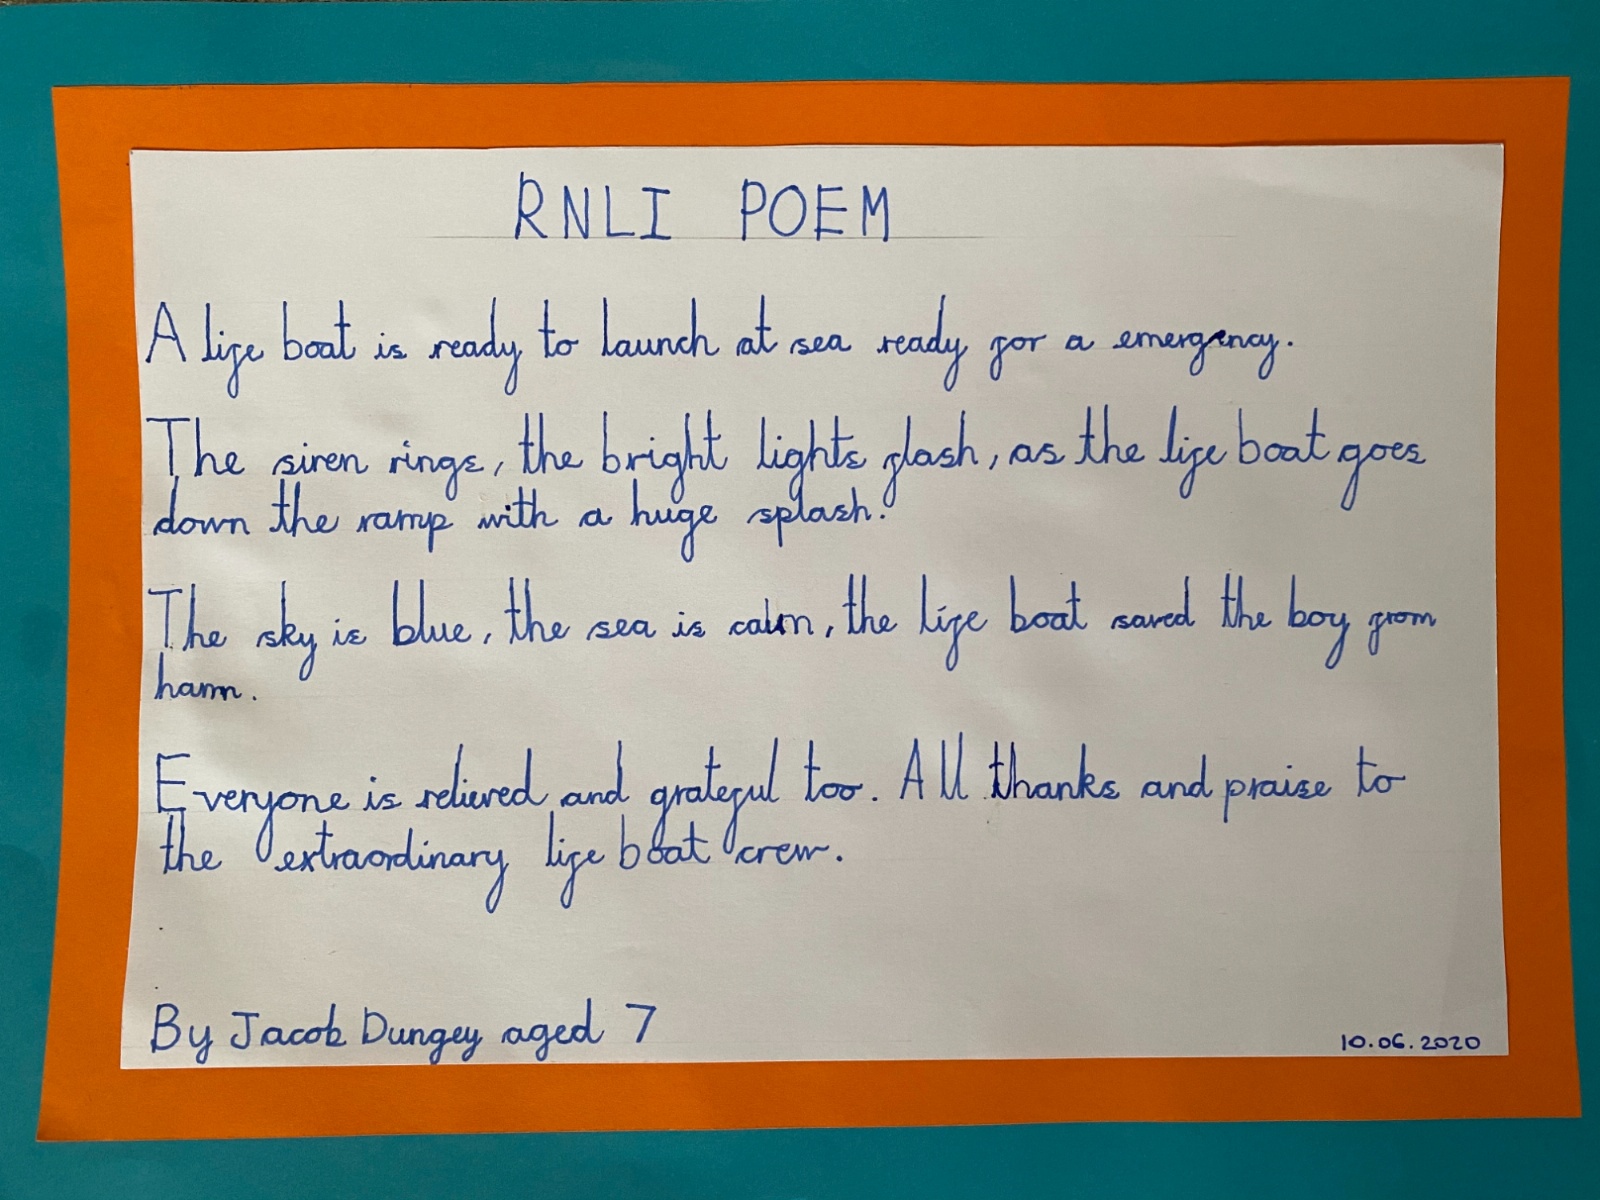 RNLI POEM
A life boat is ready to launch at sea ready for a emergency.
The siren rings, the bright lights flash, as the life boat goes
down the ramp with a huge splash.
The sky is blue, the sea is calm, the life boat saved the boy from
harm.
Everyone is relieved and grateful too. All thanks and praise to
the extraordinary life boat crew.
By Jacob Dungey aged 7
10.06.2020